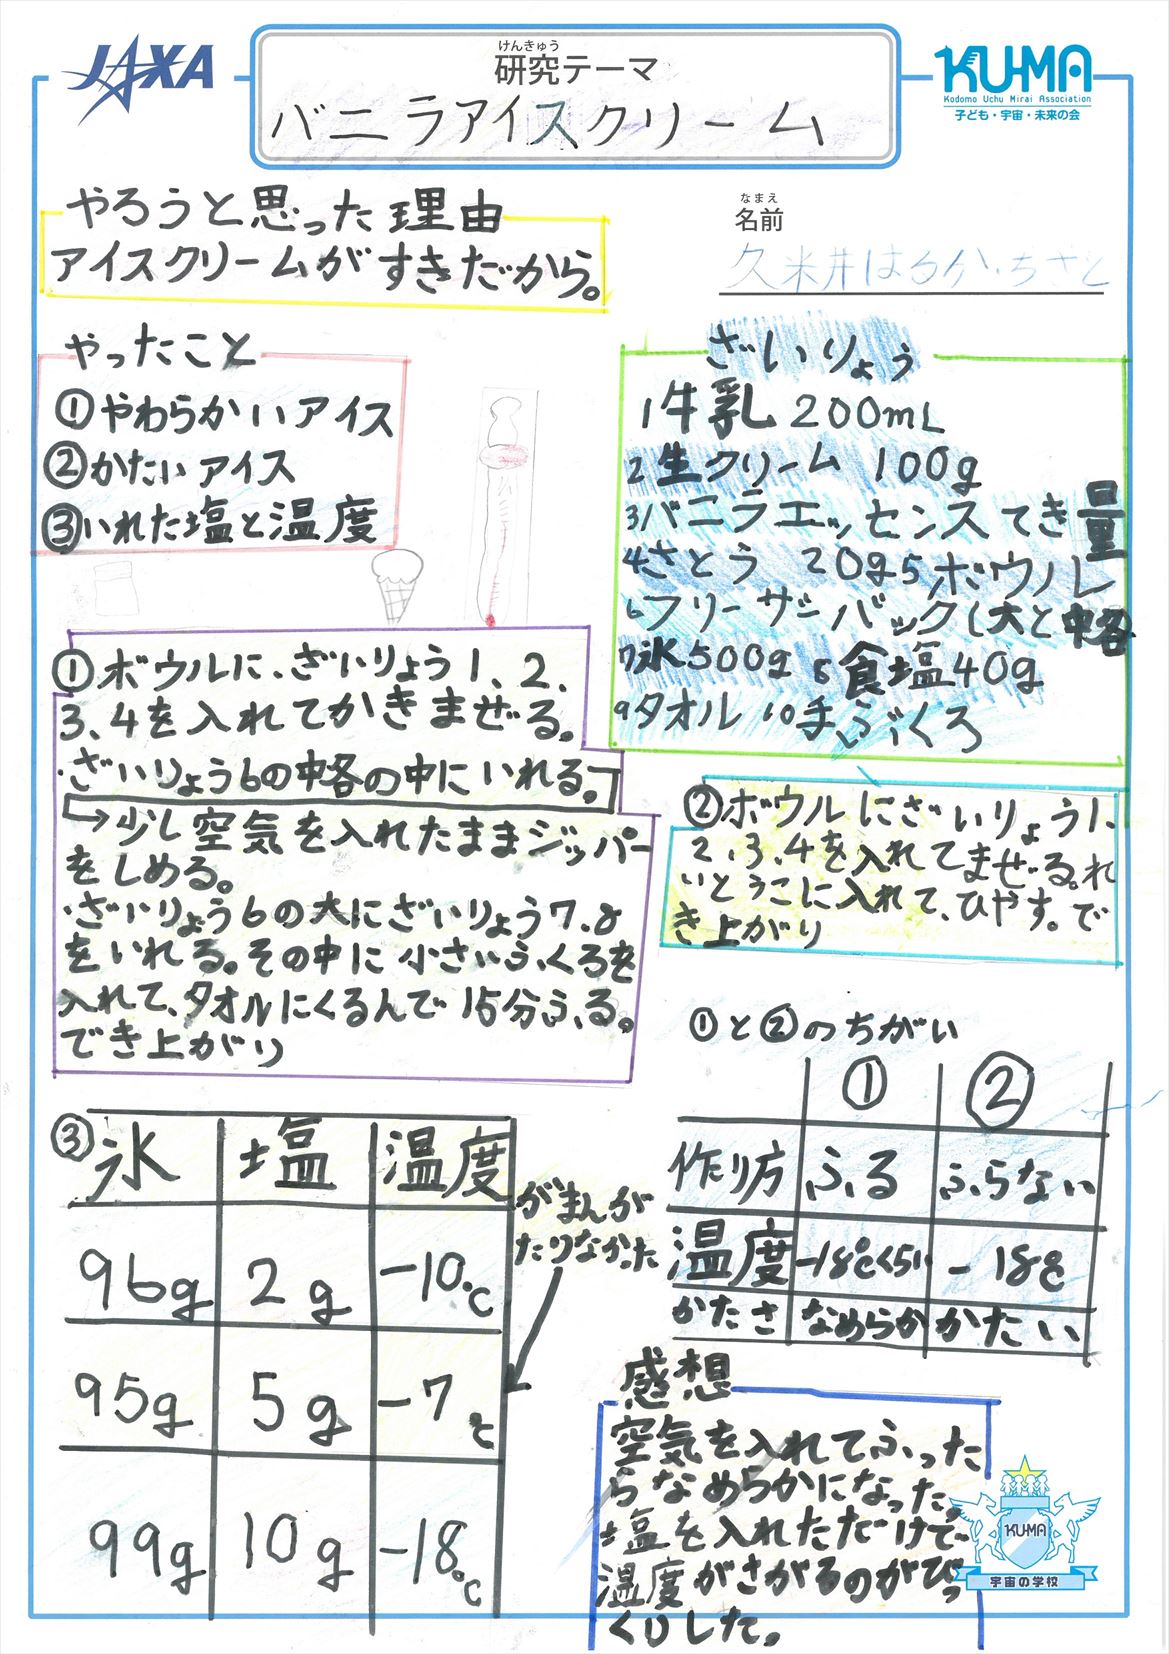 JAXA
けんきゅう
研究テーマ
バニラアイスクリーム
KU-MA
Kodomo Uchu Mirai Association
子ども・宇宙・未来の会
やろうと思った理由
アイスクリームがすきだから。
なまえ
名前
久米井はるか・ちさと
やったこと
①やわらかいアイス
②かたいアイス
③いれた塩と温度
ざいりょう
1牛乳 200mL
2生クリーム 100g
3バニラエッセンス てき量
4さとう 20g 5ボウル
6フリーザーバック(大と中各
7氷500g 8食塩40g
9タオル 10手ぶくろ
①ボウルに、ざいりょう1、2、
3、4を入れてかきまぜる。
・ざいりょう6の中各の中にいれる。
→少し空気を入れたままジッパー
をしめる。
・ざいりょう6の大にざいりょう7、8
をいれる。その中に小さいふくろを
入れて、タオルにくるんで15分ふる。
でき上がり
②ボウルにざいりょう1、
2、3、4を入れてまぜる。れ
いとうこに入れて、ひやす。で
き上がり
①と②のちがい
① ②
作り方 ふる ふらない
温度 -18℃くらい -18℃
かたさ なめらか かたい
③ 氷 塩 温度
96g 2g -10℃
95g 5g -7℃
99g 10g -18℃
がまんが
たりなかった
感想
空気を入れてふった
らなめらかになった。
塩を入れただけで
温度がさがるのがびっ
くりした。
KU-MA
宇宙の学校